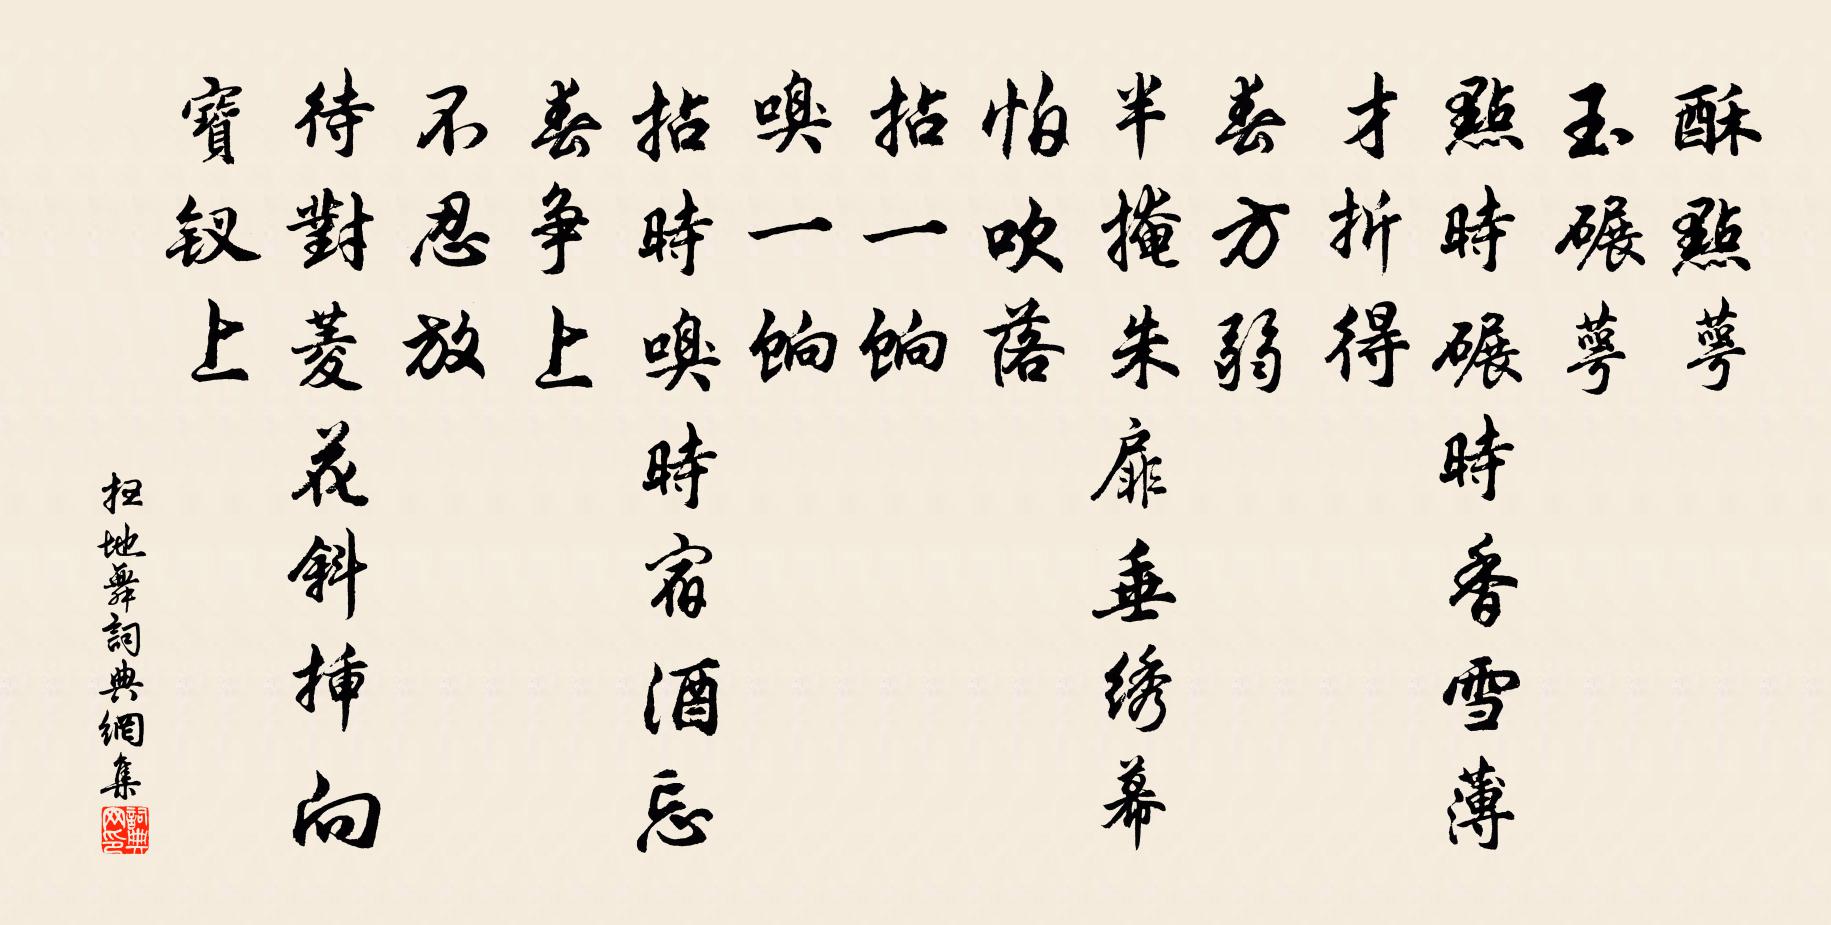 酥點萼
玉碾萼
點時碾時香雪薄
才折得
春方弱
半掩朱扉垂绣幕
怕吹落
拈一餉
嗅一餉
拈時嗅時宿酒忘
春爭上
不忍放
待對菱花斜挿向
寶钗上
扫地舞詞典網集
詞典网印